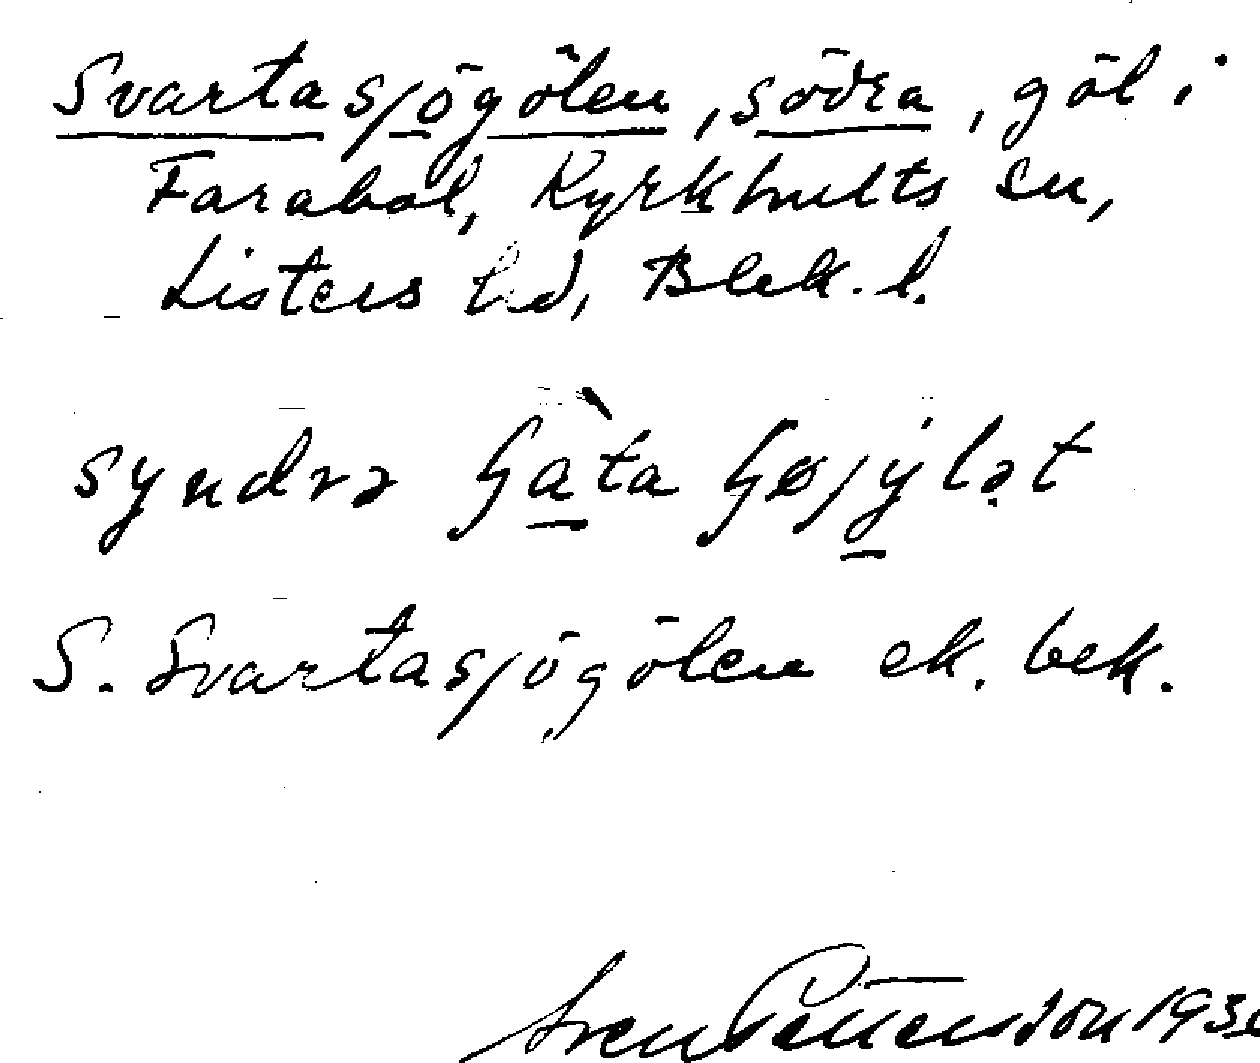 Svartasjögölen, södra, göl i
Farabol, Kyrkhults sn,
Listers hd, Blek. l.
syndrə
S. Svartasjögölen ek. bek.
Sven Pettersson